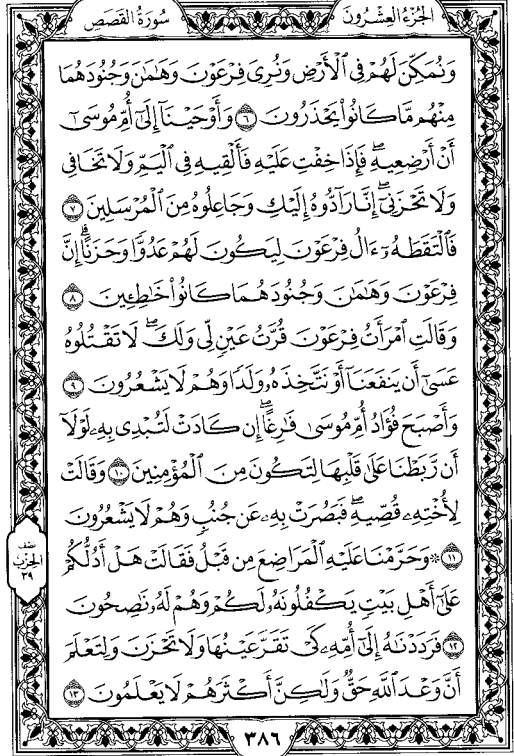 الجُزْءُ العِشْرُونَ سُورَةُ القَصَصِ
وَنُمَكِّنَ لَهُمْ فِي ٱلْأَرْضِ وَنُرِيَ فِرْعَوْنَ وَهَٰمَٰنَ وَجُنُودَهُمَا
مِنْهُم مَّا كَانُوا۟ يَحْذَرُونَ ٦ وَأَوْحَيْنَآ إِلَىٰٓ أُمِّ مُوسَىٰٓ
أَنْ أَرْضِعِيهِ ۖ فَإِذَا خِفْتِ عَلَيْهِ فَأَلْقِيهِ فِي ٱلْيَمِّ وَلَا تَخَافِي
وَلَا تَحْزَنِيٓ ۖ إِنَّا رَآدُّوهُ إِلَيْكِ وَجَاعِلُوهُ مِنَ ٱلْمُرْسَلِينَ ٧
فَٱلْتَقَطَهُۥٓ ءَالُ فِرْعَوْنَ لِيَكُونَ لَهُمْ عَدُوًّا وَحَزَنًا ۗ إِنَّ
فِرْعَوْنَ وَهَٰمَٰنَ وَجُنُودَهُمَا كَانُوا۟ خَٰطِـِٔينَ ٨
وَقَالَتِ ٱمْرَأَتُ فِرْعَوْنَ قُرَّتُ عَيْنٍ لِّي وَلَكَ ۖ لَا تَقْتُلُوهُ
عَسَىٰٓ أَن يَنفَعَنَآ أَوْ نَتَّخِذَهُۥ وَلَدًا وَهُمْ لَا يَشْعُرُونَ ٩
وَأَصْبَحَ فُؤَادُ أُمِّ مُوسَىٰ فَٰرِغًا ۖ إِن كَادَتْ لَتُبْدِي بِهِۦ لَوْلَآ
أَن رَّبَطْنَا عَلَىٰ قَلْبِهَا لِتَكُونَ مِنَ ٱلْمُؤْمِنِينَ ١٠ وَقَالَتْ
لِأُخْتِهِۦ قُصِّيهِ ۖ فَبَصُرَتْ بِهِۦ عَن جُنُبٍ وَهُمْ لَا يَشْعُرُونَ
١١ ۞ وَحَرَّمْنَا عَلَيْهِ ٱلْمَرَاضِعَ مِن قَبْلُ فَقَالَتْ هَلْ أَدُلُّكُمْ
عَلَىٰٓ أَهْلِ بَيْتٍ يَكْفُلُونَهُۥ لَكُمْ وَهُمْ لَهُۥ نَٰصِحُونَ
١٢ فَرَدَدْنَٰهُ إِلَىٰٓ أُمِّهِۦ كَيْ تَقَرَّ عَيْنُهَا وَلَا تَحْزَنَ وَلِتَعْلَمَ
أَنَّ وَعْدَ ٱللَّهِ حَقٌّ وَلَٰكِنَّ أَكْثَرَهُمْ لَا يَعْلَمُونَ ١٣
نصف
الحزب
٣٩
٣٨٦